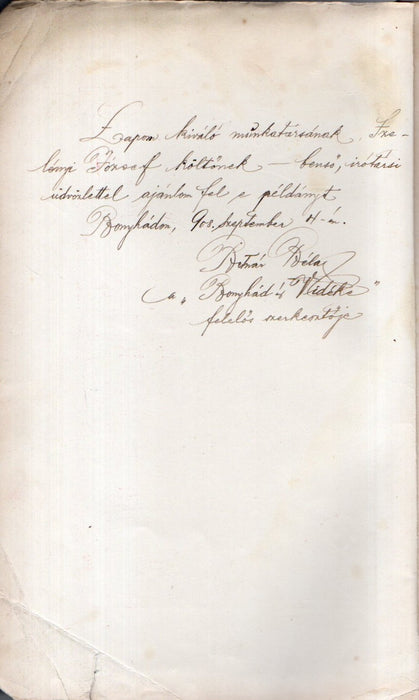 Lapom kiváló munkatársának, Sze-
lényi József költőnek — benső, irótársi
üdvözlettel ajánlom fel e példányt
Bonyhádon, 908. szeptember
Béla
a „Bonyhád és Vidéke"
felelős szerkesztője